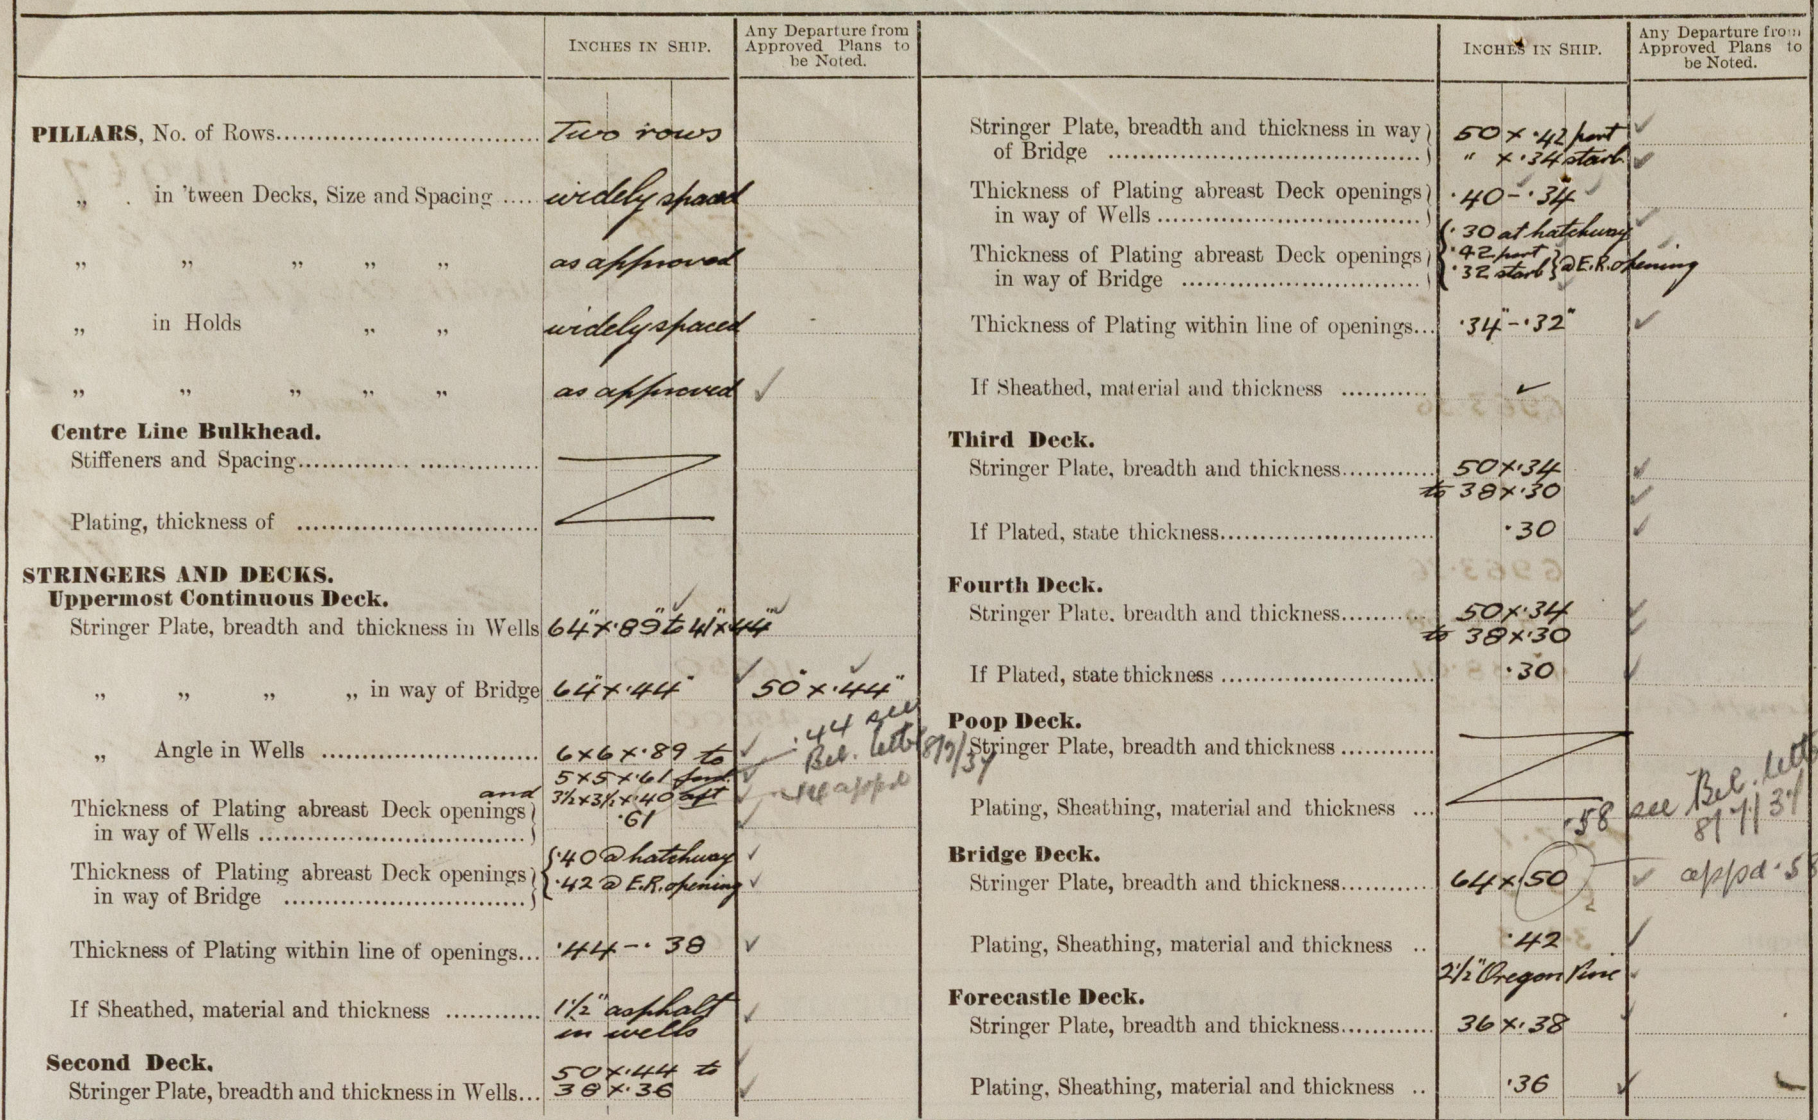 INCHES IN SHIP.
Any Departure from
Approved Plans to
be Noted.
PILLARS, No. of Rows Two rows
„ in 'tween Decks, Size and Spacing widely spaced
„ „ „ „ „ as approved
„ in Holds „ „ widely spaced
„ „ „ „ „ as approved ✓
Centre Line Bulkhead.
Stiffeners and Spacing
Plating, thickness of
STRINGERS AND DECKS.
Uppermost Continuous Deck.
Stringer Plate, breadth and thickness in Wells 64" x .89" to 41" x .44"
„ „ „ „ in way of Bridge 64" x .44" ✓ 50" x .44"
.44 see
Bel. lettr 8/9/34
„ Angle in Wells 6 x 6 x .89 to ✓
5 x 5 x .61 ford. ✓
and 3½ x 3½ x .40 aft ✓ appd
Thickness of Plating abreast Deck openings
in way of Wells .61 ✓
Thickness of Plating abreast Deck openings
in way of Bridge
.40 @ hatchway ✓
.42 @ E.R. opening ✓
Thickness of Plating within line of openings... .44 - .38 ✓
If Sheathed, material and thickness 1½" asphalt ✓
in wells
Second Deck.
Stringer Plate, breadth and thickness in Wells... 50 x .44 to
38 x .36 ✓
INCHES IN SHIP.
Any Departure from
Approved Plans to
be Noted.
Stringer Plate, breadth and thickness in way
of Bridge
50 x .42 port ✓
" x .34 starb ✓
Thickness of Plating abreast Deck openings
in way of Wells .40 - .34 ✓
Thickness of Plating abreast Deck openings
in way of Bridge
.30 at hatchway ✓
.42 port
.32 starb } @ E.R. opening
Thickness of Plating within line of openings... .34" - .32" ✓
If Sheathed, material and thickness ✓
Third Deck.
Stringer Plate, breadth and thickness 50 x .34 ✓
to 38 x .30 ✓
If Plated, state thickness .30 ✓
Fourth Deck.
Stringer Plate, breadth and thickness 50 x .34 ✓
to 38 x .30 ✓
If Plated, state thickness .30 ✓
Poop Deck.
Stringer Plate, breadth and thickness
Plating, Sheathing, material and thickness ...
.58 see Bel. lettr
8/9/34
Bridge Deck.
Stringer Plate, breadth and thickness 64 x .50 ✓ appd .58
Plating, Sheathing, material and thickness .. .42 ✓
2½" Oregon Pine ✓
Forecastle Deck.
Stringer Plate, breadth and thickness 36 x .38 ✓
Plating, Sheathing, material and thickness .. .36 ✓